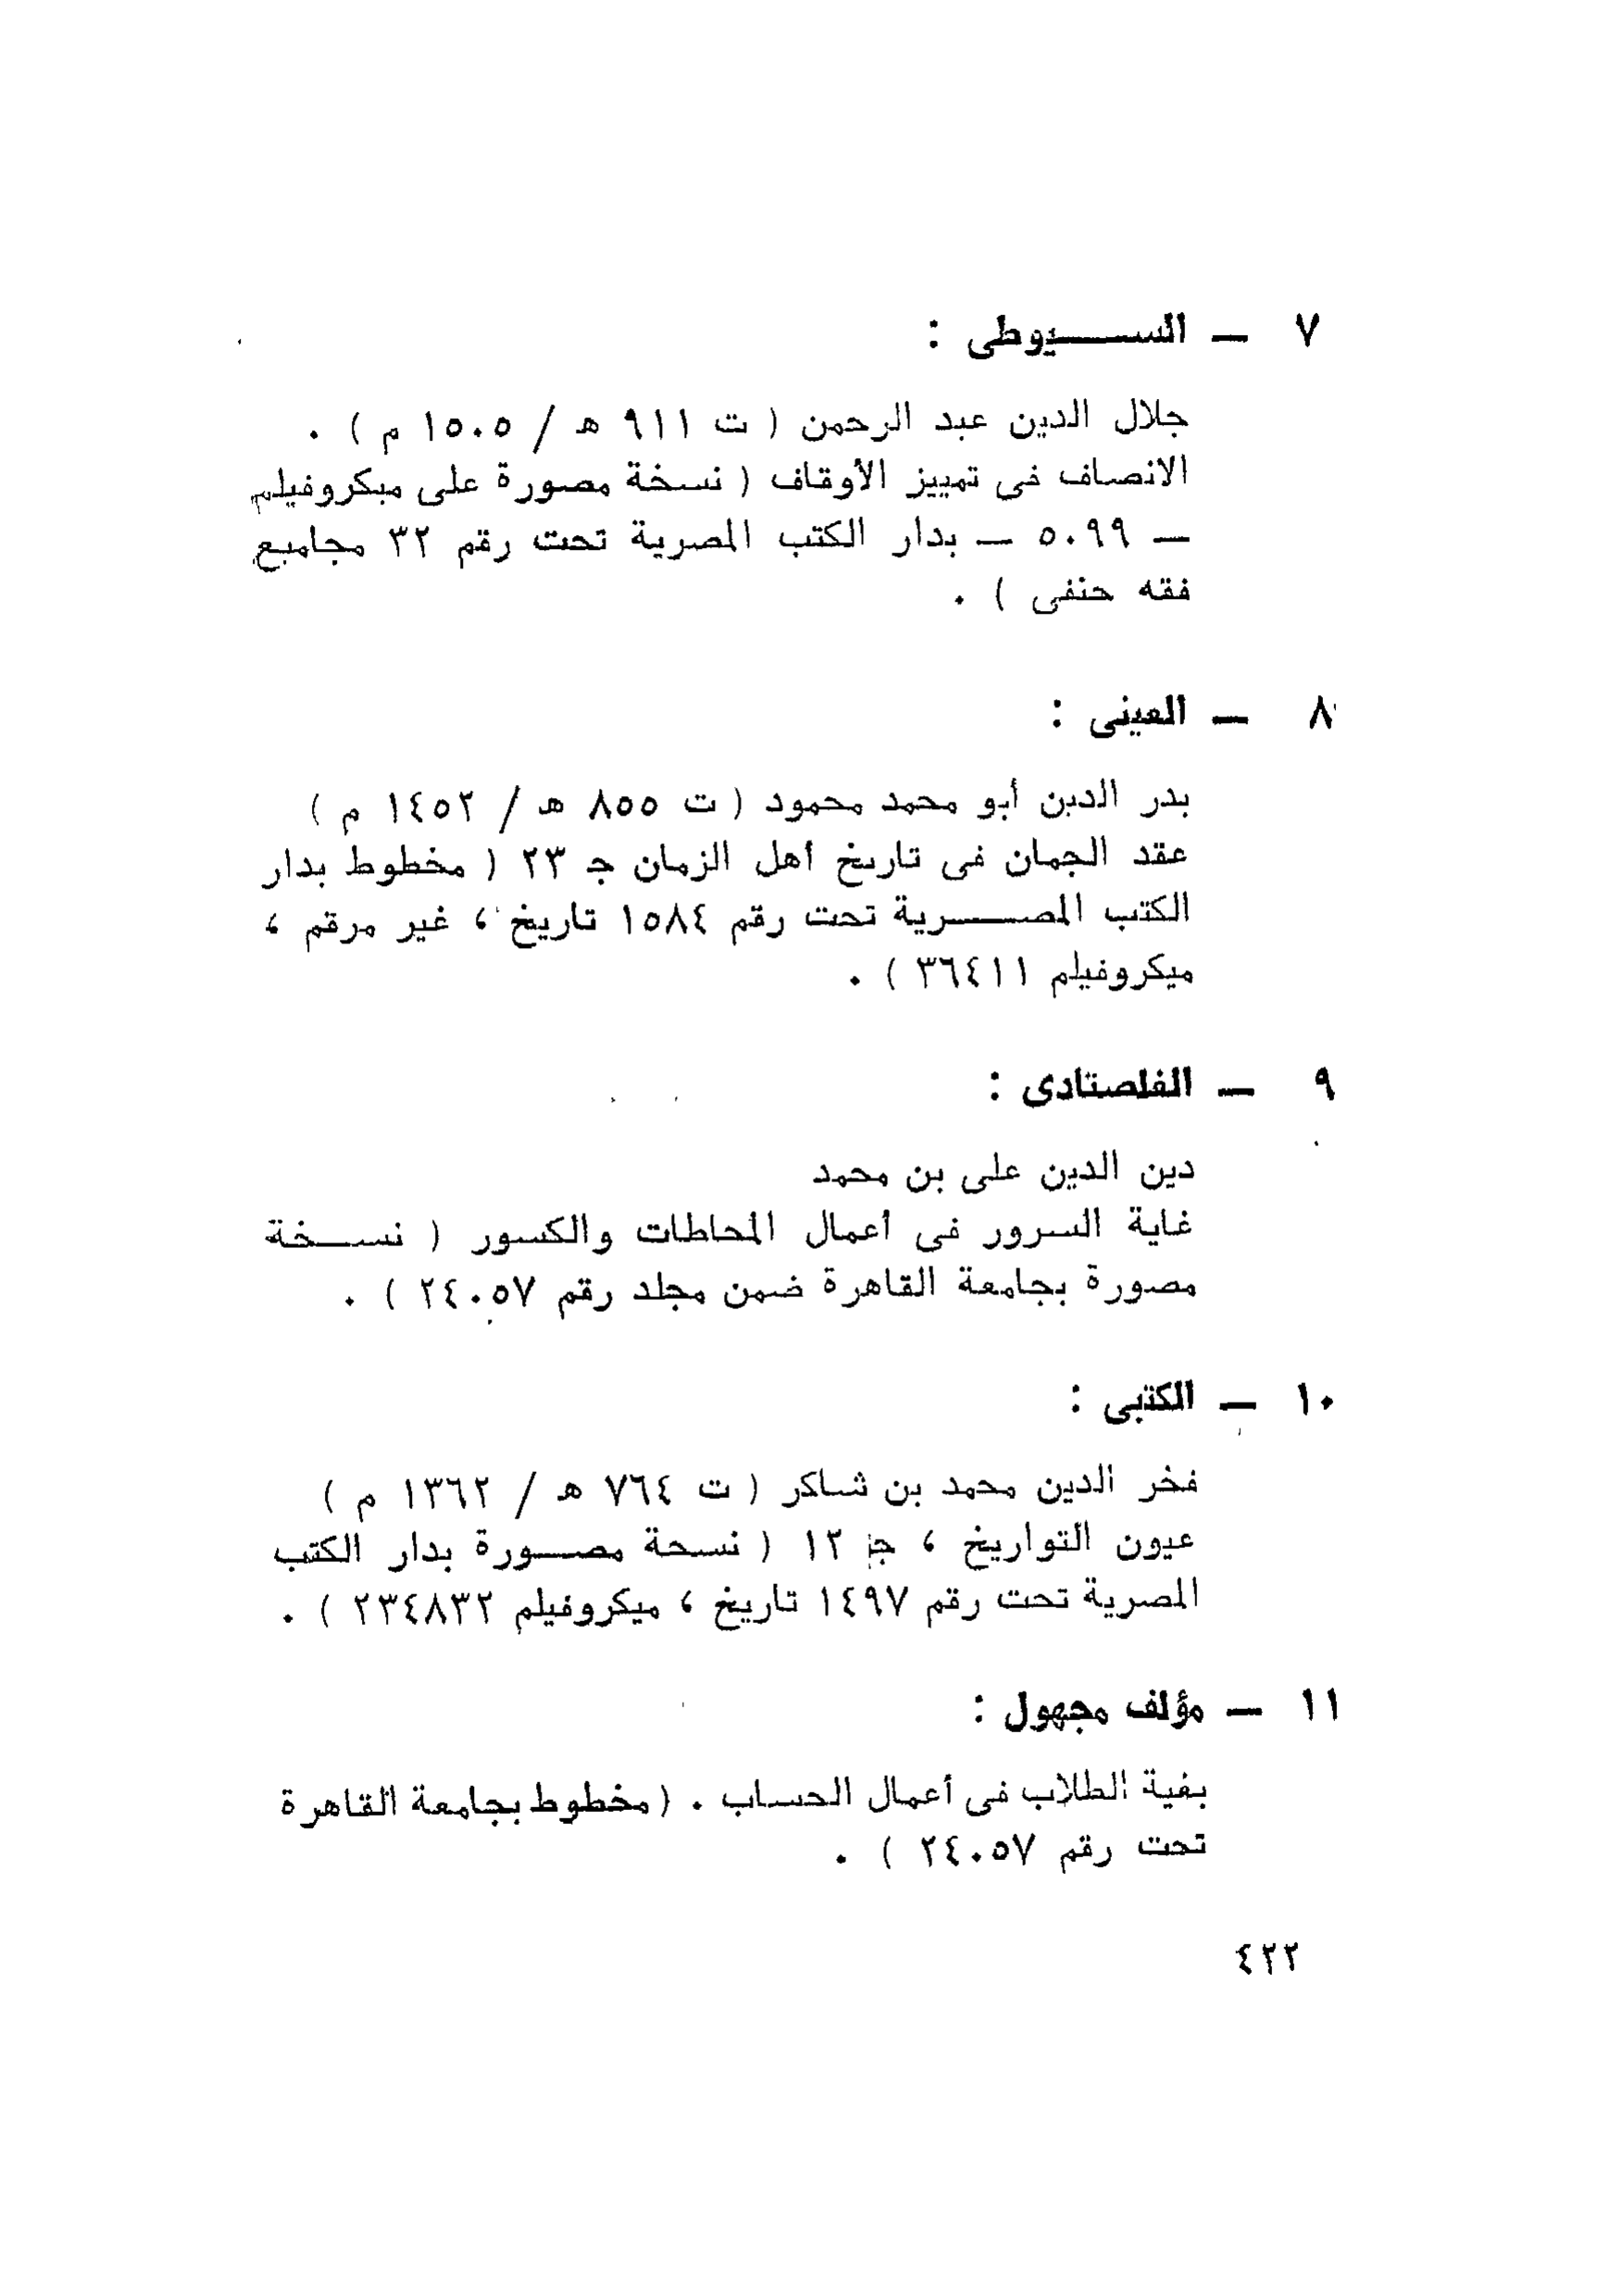 ٧ — السيوطى :
جلال الدين عبد الرحمن ( ت ٩١١ ه / ١٥٠٥ م ) .
الانصاف فى تمييز الأوقاف ( نسخة مصورة على ميكروفيلم
— ٥٠٩٩ — بدار الكتب المصرية تحت رقم ٣٢ مجاميع
فقه حنفى ) .
٨ — العينى :
بدر الدين أبو محمد محمود ( ت ٨٥٥ ه / ١٤٥٢ م )
عقد الجمان فى تاريخ أهل الزمان ج ٢٣ ( مخطوط بدار
الكتب المصرية تحت رقم ١٥٨٤ تاريخ ، غير مرقم ،
ميكروفيلم ٣٦٤١١ ) .
٩ — الفلصتادى :
دين الدين على بن محمد
غاية السرور فى أعمال المحاطات والكسور ( نسخة
مصورة بجامعة القاهرة ضمن مجلد رقم ٢٤٠٥٧ ) .
١٠ — الكتبى :
فخر الدين محمد بن شاكر ( ت ٧٦٤ ه / ١٣٦٢ م )
عيون التواريخ ، ج ١٢ ( نسحة مصورة بدار الكتب
المصرية تحت رقم ١٤٩٧ تاريخ ، ميكروفيلم ٢٣٤٨٣٢ ) .
١١ — مؤلف مجهول :
بغية الطلاب فى أعمال الحساب . ( مخطوط بجامعة القاهرة
تحت رقم ٢٤٠٥٧ ) .
٤٢٢